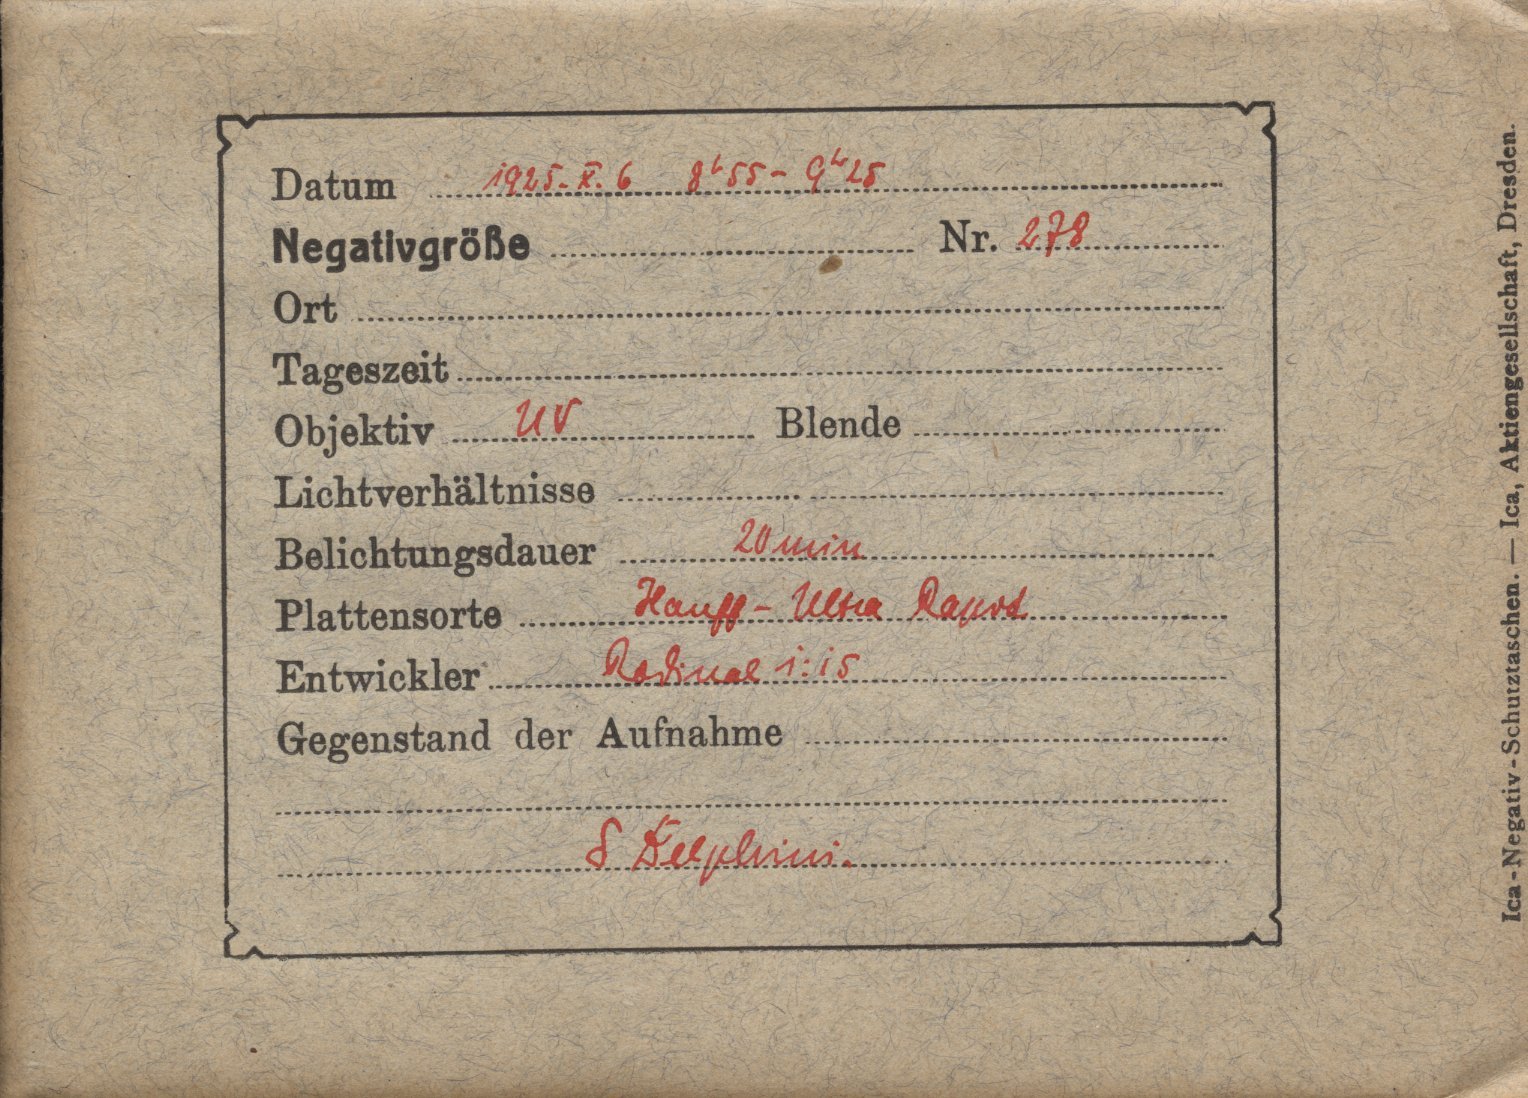 Datum 1925. X. 6 8h55 - 9h25
Negativgröße Nr. 278
Ort
Tageszeit
Objektiv UV Blende
Lichtverhältnisse
Belichtungsdauer 20 min
Plattensorte Hauff - Ultra Rapid
Entwickler Rodinal 1:15
Gegenstand der Aufnahme
δ Delphini.
Ica-Negativ-Schutztaschen. — Ica, Aktiengesellschaft, Dresden.